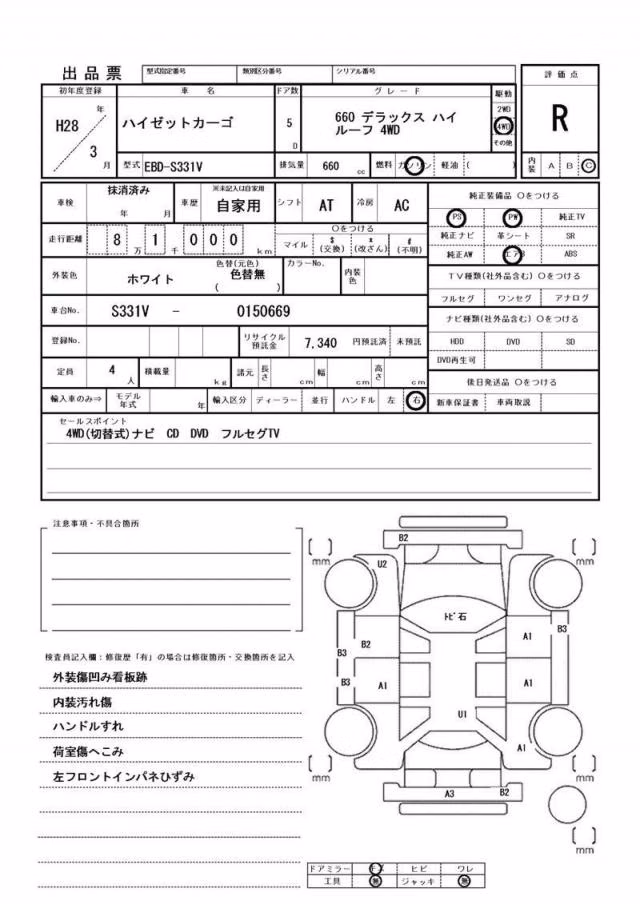 出品票 型式指定番号 類別区分番号 シリアル番号
評価点
初年度登録 車名 ドア数 グレード 駆動
H28 年 ハイゼットカーゴ 5 D 660 デラックス ハイ 2WD R
ルーフ 4WD 4WD
3 月 その他
型式 EBD-S331V 排気量 660 cc 燃料 ガソリン 軽油 ( ) 内装 A B C
車検 抹消済み 年 月 車歴 ※未記入は自家用 自家用 シフト AT 冷房 AC 純正装備品 〇をつける
PS PW 純正TV
走行距離 8 万 1 千 0 0 0 km 〇をつける
マイル $ (交換) * (改ざん) # (不明) 純正ナビ 革シート SR
純正AW エアB ABS
外装色 ホワイト 色替(元色) 色替無 ( ) カラーNo. 内装色 TV種類(社外品含む) 〇をつける
フルセグ ワンセグ アナログ
車台No. S331V - 0150669 ナビ種類(社外品含む) 〇をつける
登録No. リサイクル預託金 7,340 円預託済 未預託 HDD DVD SD
DVD再生可
定員 4 人 積載量 kg 諸元 長さ cm 幅 cm 高さ cm 後日発送品 〇をつける
輸入車のみ⇒ モデル年式 年 輸入区分 ディーラー 並行 ハンドル 左 右 新車保証書 車両取説
セールスポイント
4WD(切替式)ナビ CD DVD フルセグTV
注意事項・不具合箇所
検査員記入欄：修復歴「有」の場合は修復箇所・交換箇所を記入
外装傷凹み看板跡
内装汚れ傷
ハンドルすれ
荷室傷へこみ
左フロントインパネひずみ
B2
[ ] mm [ ] mm
U2
トビ石
B3 B2 A1 B3
B3 A1 A1
U1
A1
[ ] mm [ ] mm
A3 B2
[ ] mm
ドアミラー キズ ヒビ ワレ
工具 無 ジャッキ 無